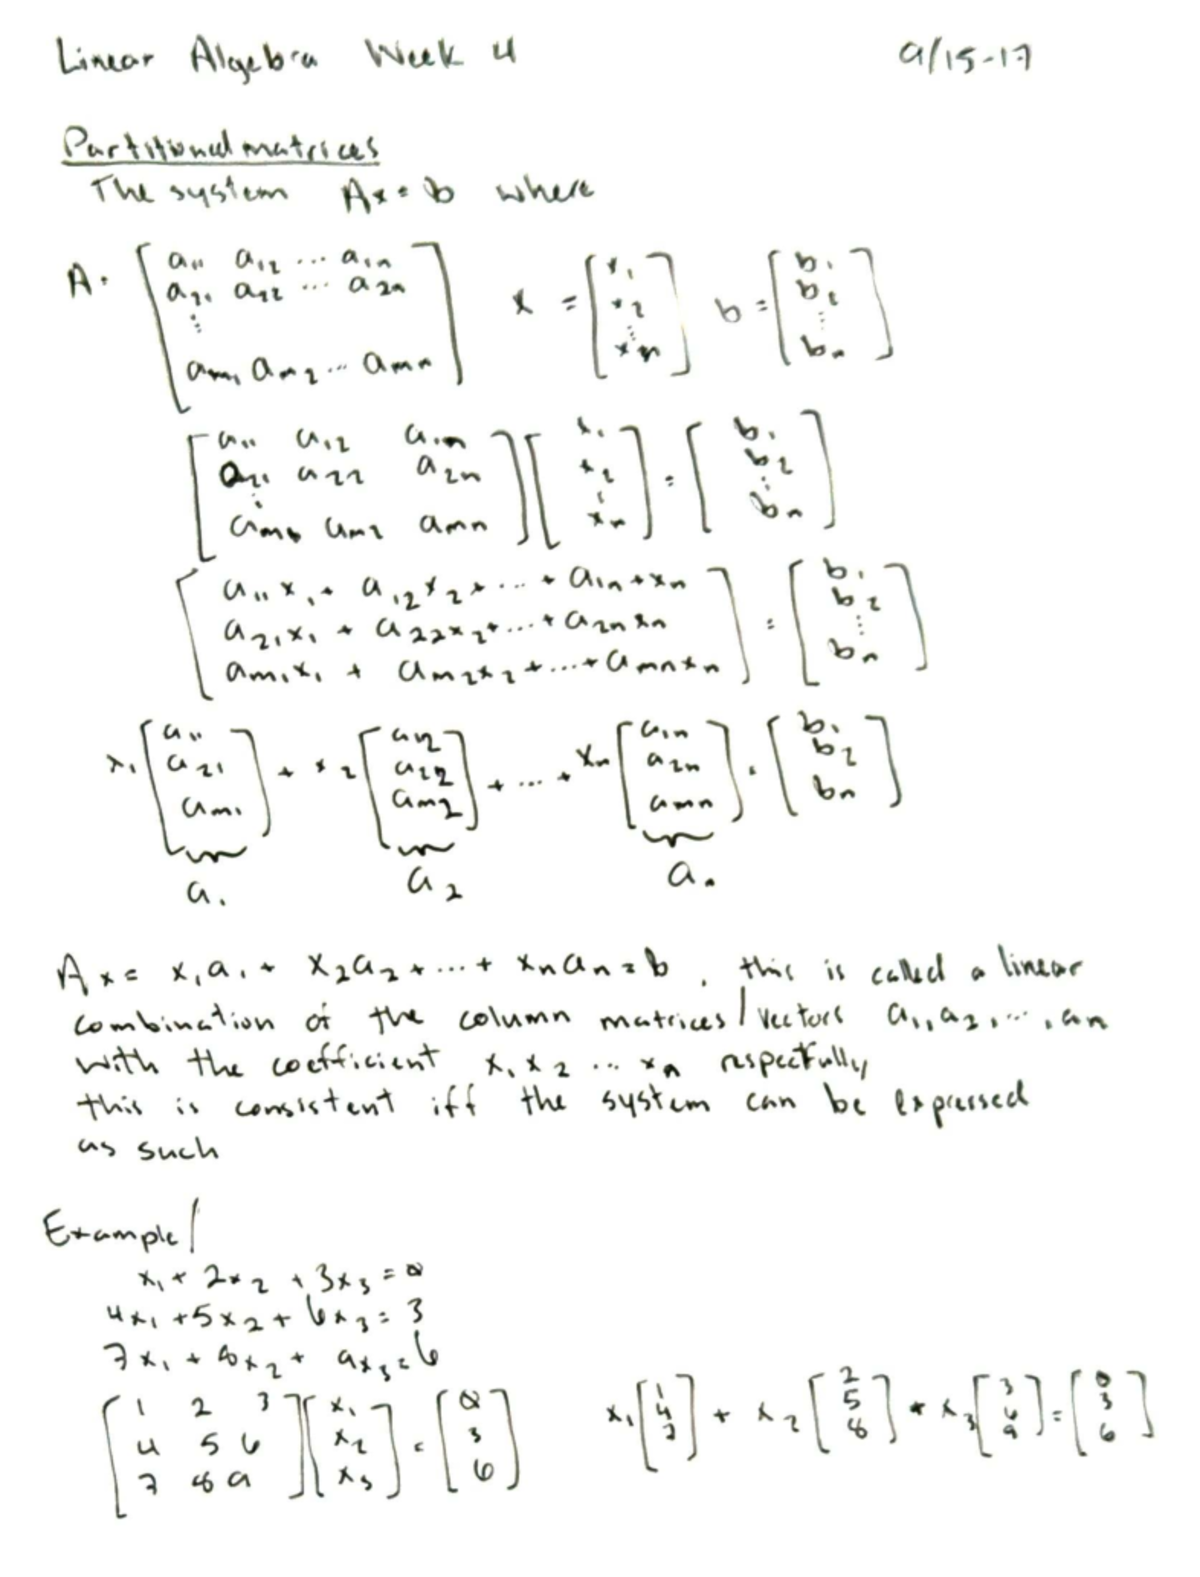 Linear Algebra Week 4 9/15-17
Partitioned matrices
The system Ax = b where
A = [a₁₁ a₁₂ ... a₁ₙ; a₂₁ a₂₂ ... a₂ₙ; ⋮; aₘ₁ aₘ₂ ... aₘₙ] x = [x₁; x₂; ⋮; xₙ] b = [b₁; b₂; ⋮; bₙ]
[a₁₁ a₁₂ a₁ₙ; a₂₁ a₂₂ a₂ₙ; ⋮; aₘ₁ aₘ₂ aₘₙ] [x₁; x₂; ⋮; xₙ] = [b₁; b₂; ⋮; bₙ]
[a₁₁x₁ + a₁₂x₂ + ... + a₁ₙ + xₙ; a₂₁x₁ + a₂₂x₂ + ... + a₂ₙxₙ; aₘ₁x₁ + aₘ₂x₂ + ... + aₘₙxₙ] = [b₁; b₂; ⋮; bₙ]
x₁[a₁₁; a₂₁; aₘ₁] + x₂[a₁₂; a₂₂; aₘ₂] + ... + xₙ[a₁ₙ; a₂ₙ; aₘₙ] = [b₁; b₂; bₙ]
a₁ a₂ aₙ
Ax = x₁a₁ + x₂a₂ + ... + xₙaₙ = b, this is called a linear
combination of the column matrices/vectors a₁, a₂, ..., aₙ
with the coefficient x₁ x₂ ... xₙ respectfully
this is consistent iff the system can be expressed
as such
Example/
x₁ + 2x₂ + 3x₃ = 0
4x₁ + 5x₂ + 6x₃ = 3
7x₁ + 8x₂ + 9x₃ = 6
[1 2 3; 4 5 6; 7 8 9] [x₁; x₂; x₃] = [0; 3; 6] x₁[1; 4; 7] + x₂[2; 5; 8] + x₃[3; 6; 9] = [0; 3; 6]